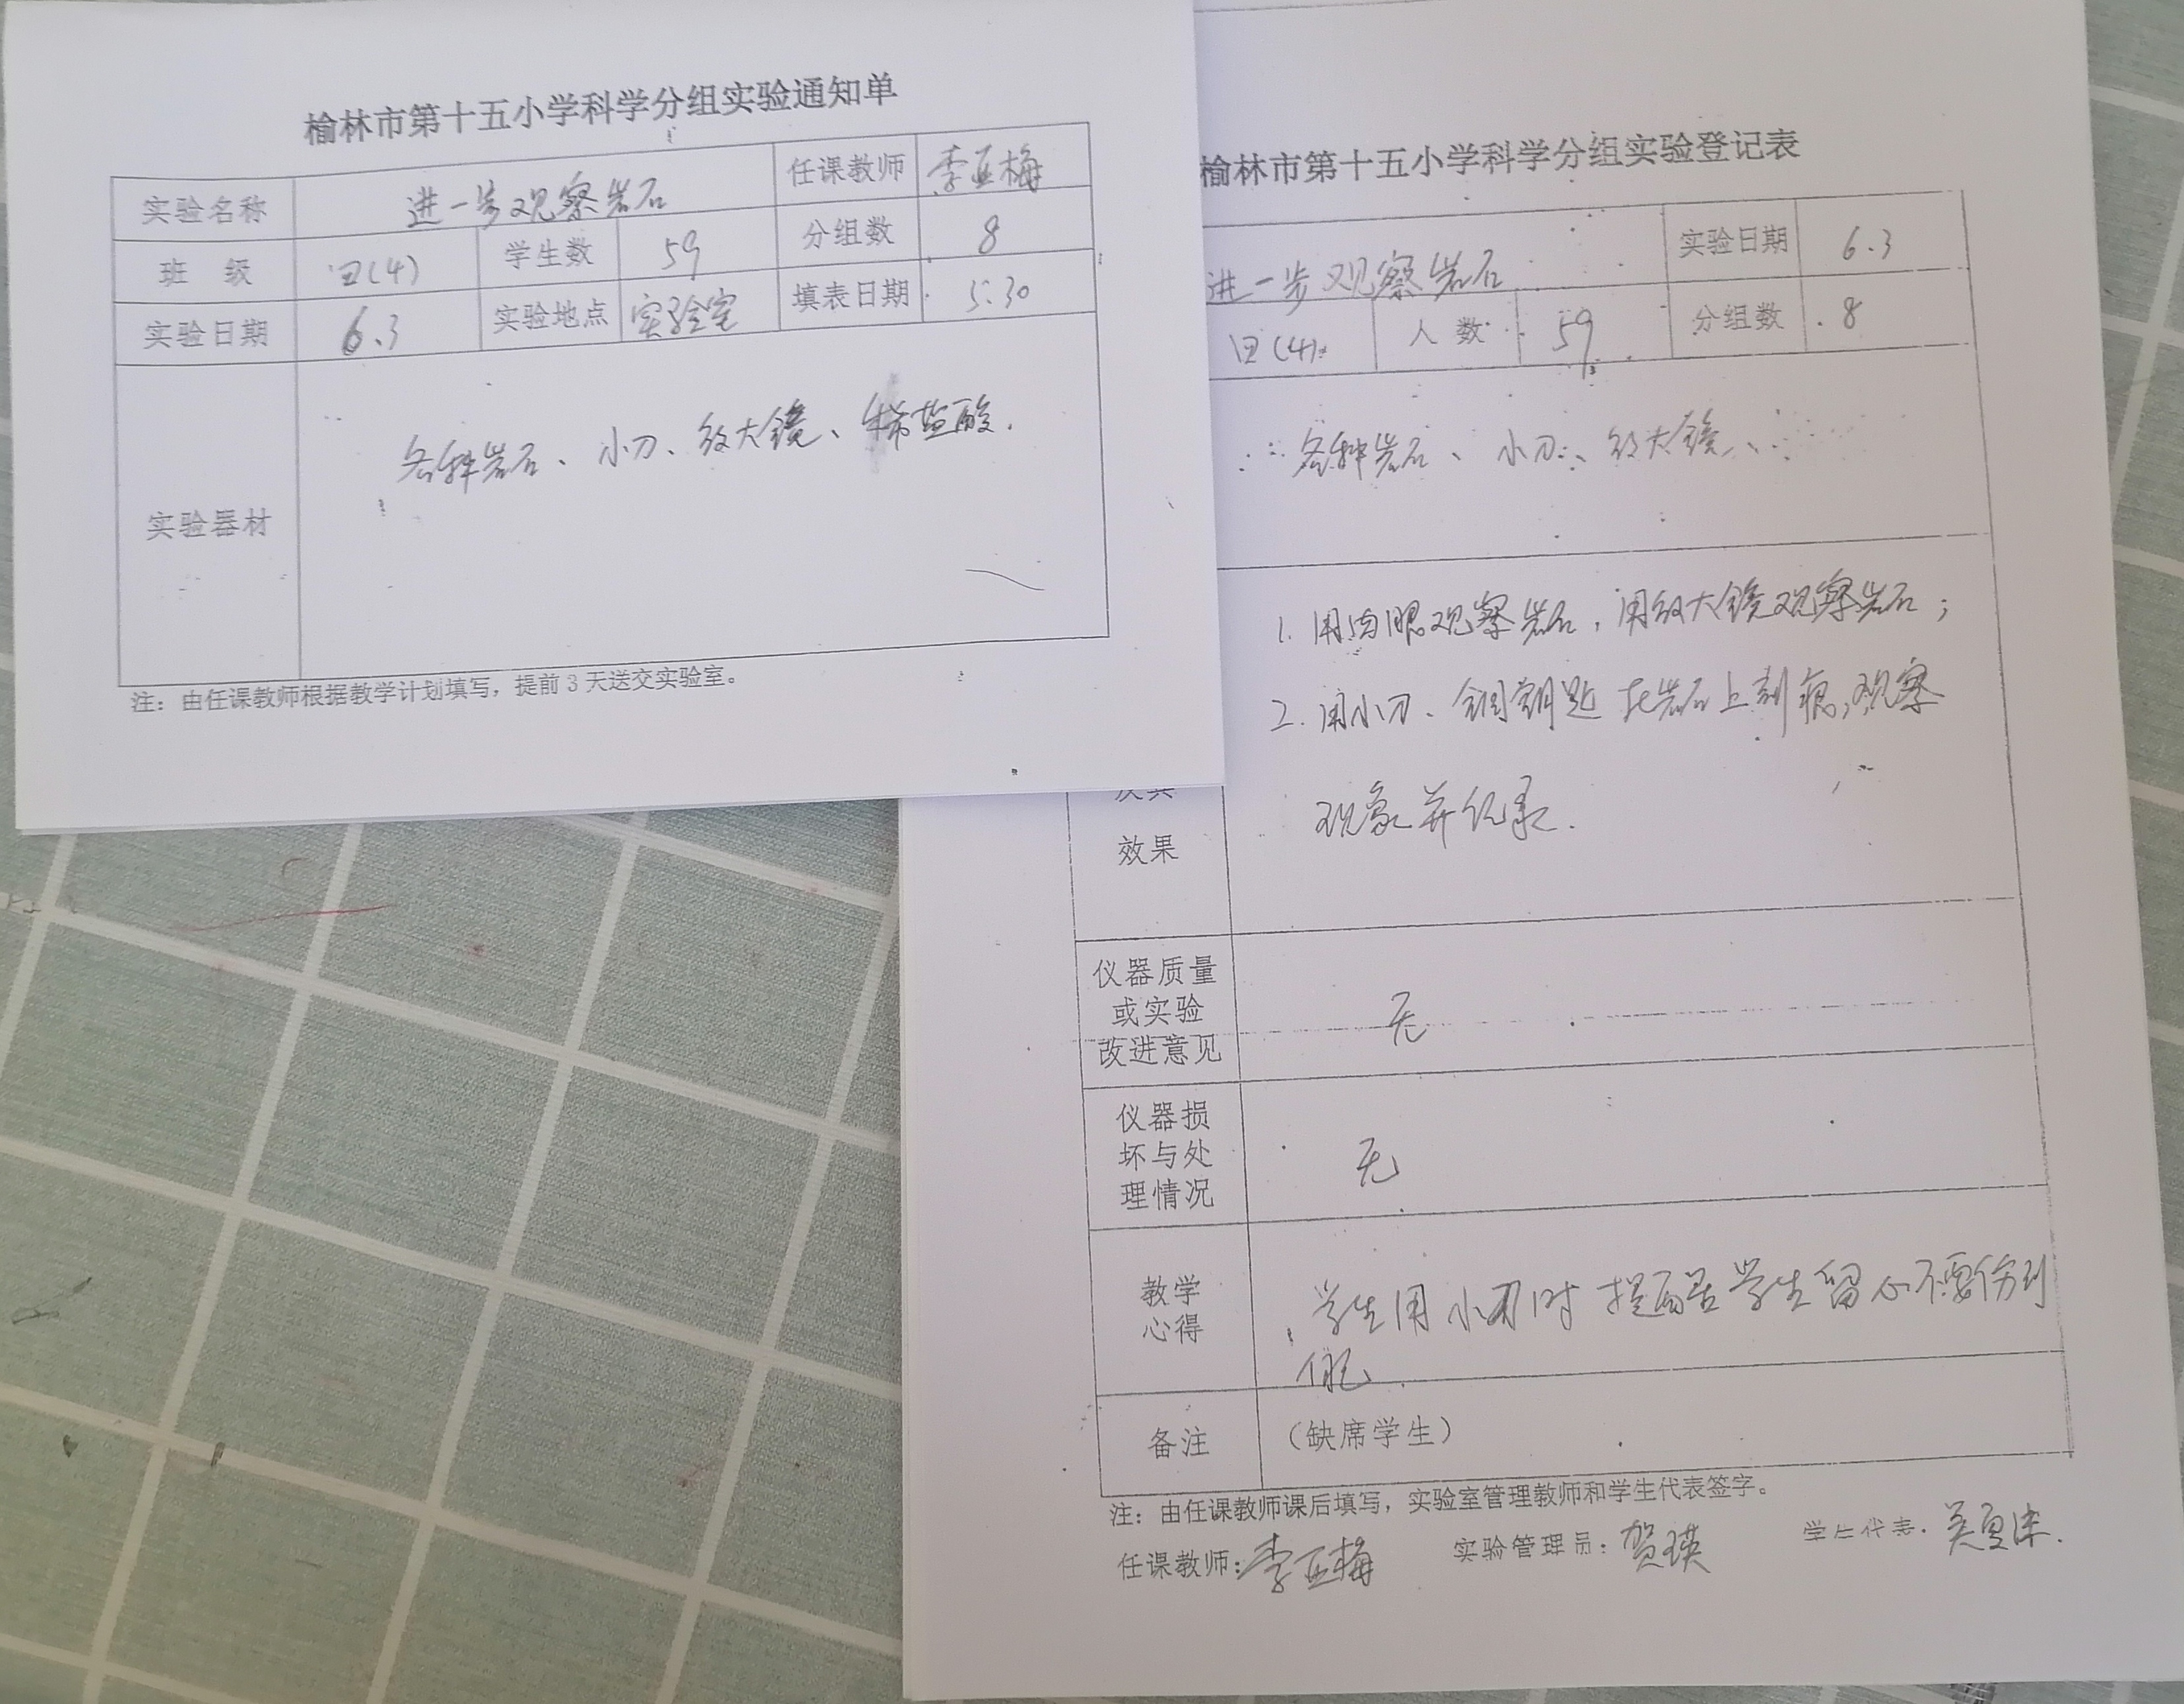 榆林市第十五小学科学分组实验通知单
实验名称 进一步观察岩石 任课教师 李亚梅
班 级 四(4) 学生数 59 分组数 8
实验日期 6.3 实验地点 实验室 填表日期 5.30
实验器材 各种岩石、小刀、放大镜、稀盐酸.
注：由任课教师根据教学计划填写，提前3天送交实验室。
榆林市第十五小学科学分组实验登记表
进一步观察岩石 实验日期 6.3
四(4) 人数 59 分组数 8
各种岩石、小刀、放大镜、
1. 用肉眼观察岩石，用放大镜观察岩石；
2. 用小刀、铜钥匙在岩石上刻痕，观察
现象并纪录.
及其
效果
仪器质量
或实验
改进意见
无
仪器损
坏与处
理情况
无
教学
心得
学生用小刀时提醒学生留心不要伤到
自己.
备注 （缺席学生）
注：由任课教师课后填写，实验室管理教师和学生代表签字。
任课教师：李亚梅 实验管理员：贺瑛 学生代表：吴